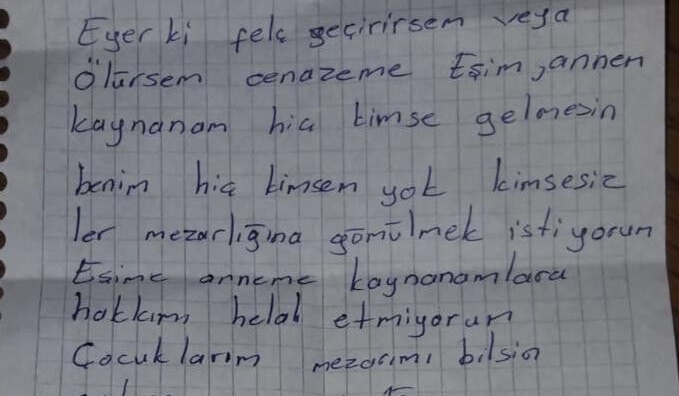 Eğer ki felç geçirirsem veya
Ölürsem cenazeme Eşim, annem
kaynanam hiç kimse gelmesin
benim hiç kimsem yok kimsesiz
ler mezarlığına gömülmek istiyorum
Eşime anneme kaynanamlara
hakkımı helal etmiyorum
Çocuklarım mezarımı bilsin